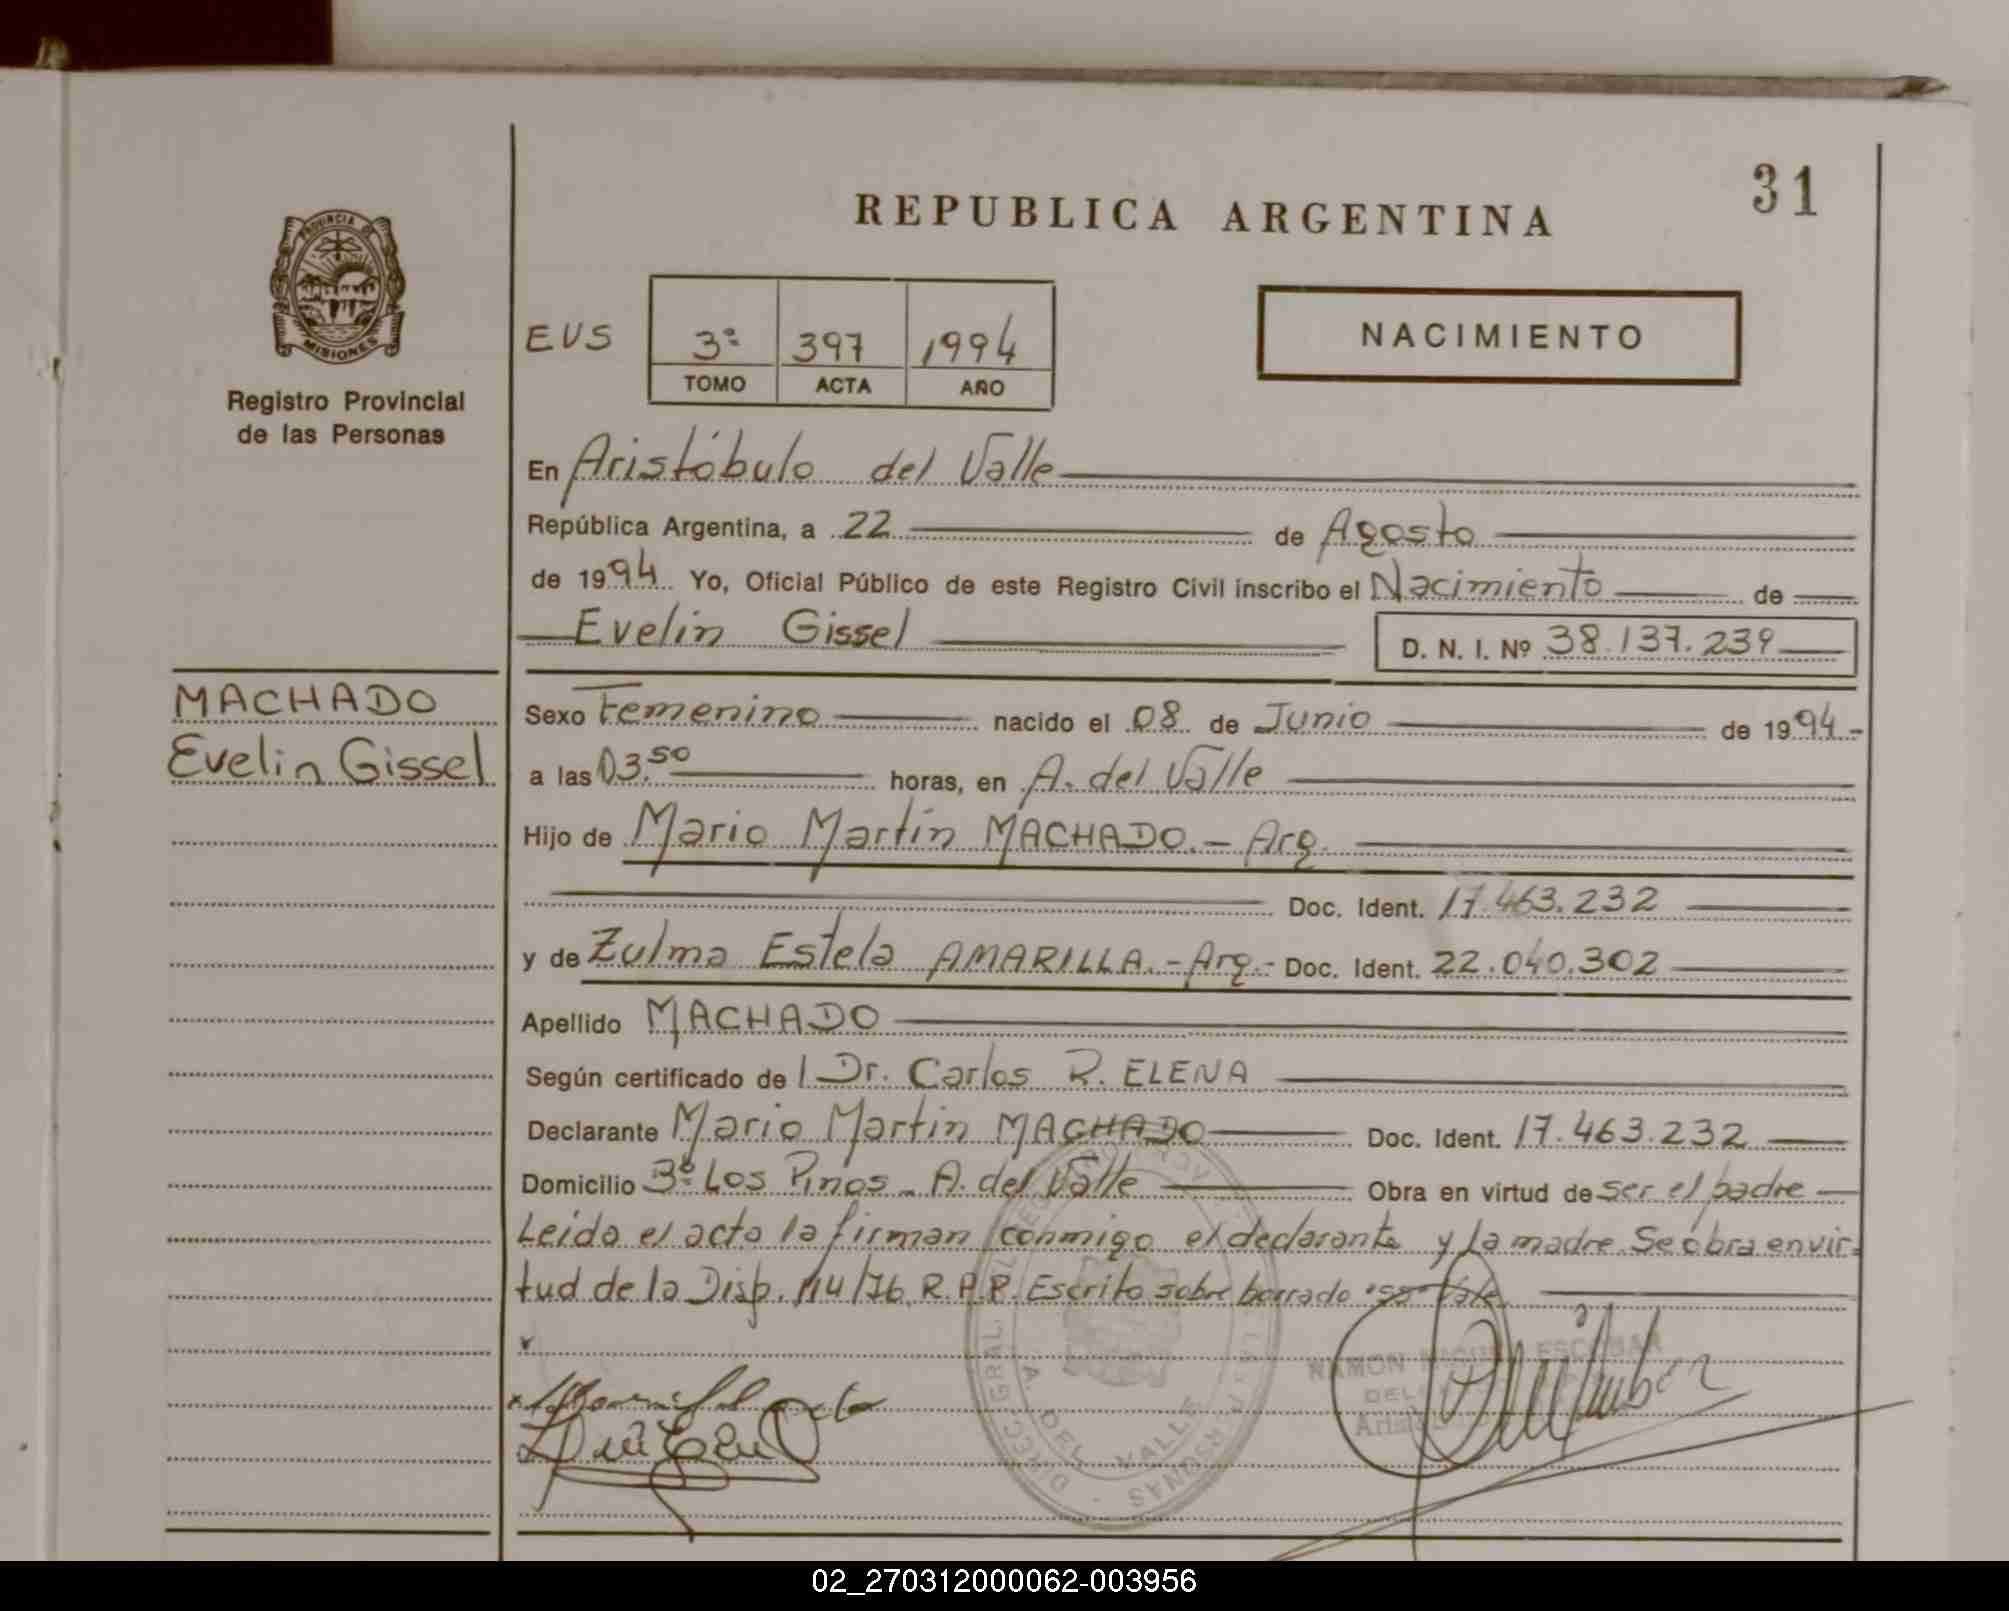 31
REPUBLICA ARGENTINA
PROVINCIA DE
MISIONES
Registro Provincial
de las Personas
EUS
3º 397 1994
TOMO ACTA AÑO
NACIMIENTO
En Aristóbulo del Valle
República Argentina, a 22 de Agosto
de 1994 Yo, Oficial Público de este Registro Civil inscribo el Nacimiento de
Evelin Gissel D. N. I. Nº 38.137.239
MACHADO
Evelin Gissel
Sexo Femenino nacido el 08 de Junio de 1994-
a las 03.50 horas, en A. del Valle
Hijo de Mario Martin MACHADO.- Arg.
Doc. Ident. 17.463.232
y de Zulma Estela AMARILLA.-Arg.- Doc. Ident. 22.040.302
Apellido MACHADO
Según certificado de Dr. Carlos R. ELENA
Declarante Mario Martin MACHADO Doc. Ident. 17.463.232
Domicilio Bº Los Pinos - A. del Valle Obra en virtud de ser el padre
Leida el acta la firman conmigo el declarante y la madre. Se obra en vir-
tud de la Disp. 114/76 R.P.P. Escrito sobre borrado Vale
RAMON ESCOBAR
A. DEL VALLE
MISIONES
02_270312000062-003956